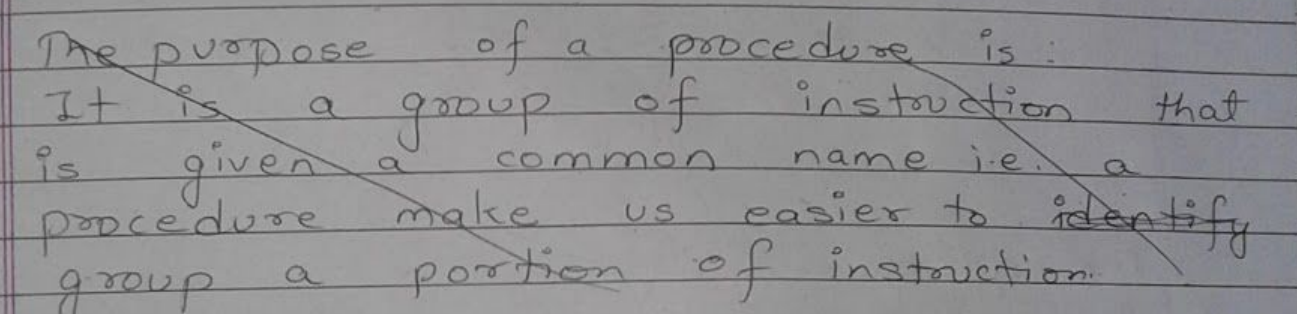 The purpose of a procedure is:
It is a group of instruction that
is given a common name i.e. a
procedure make us easier to identify
group a portion of instruction.